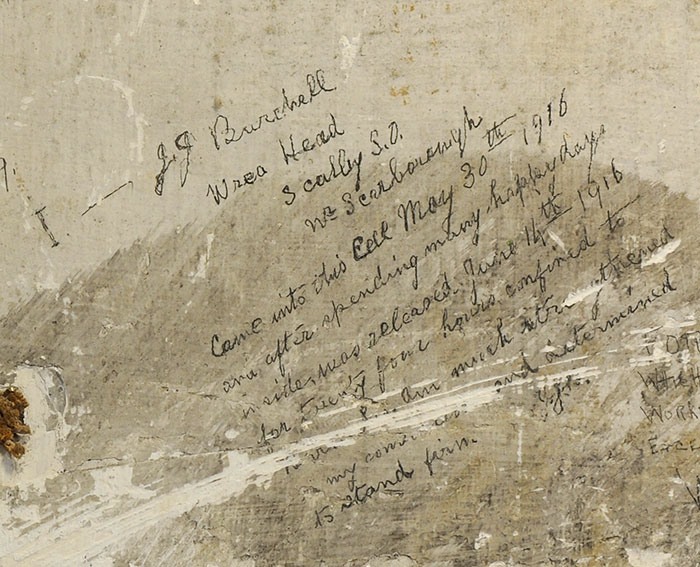 I. — J.J Burchell
Wrea Head
Scalby S.O.
Nr Scarborough
Came into this Cell May 30th 1916
and after spending many happy days
inside, was released June 14th 1916
for twenty four hours confined to
am much strengthened
my and determined
to stand firm
WORK